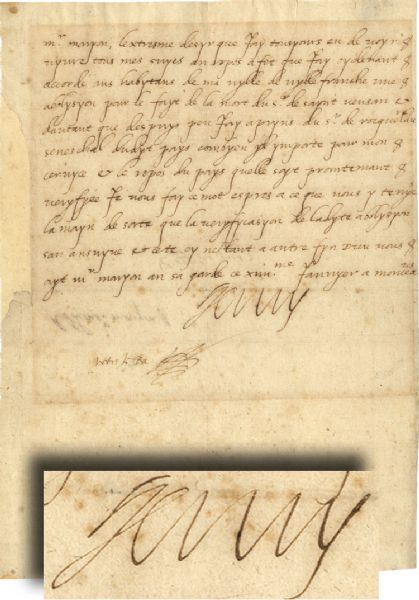 mr maryon, lextreme desyr que Jay tousyours eu de voyr &
vyvre tous mes sugés an repos a fet que Jay cydevant &
acordé aus habytans de ma vylle de vylle franche une &
abolysyon pour le fayt de la mort du sr de saynt vensan &
dautant que despuys peu Jay apryns du sr de
seneschal dudyt pays conbyen yl ymporte pour mon &
servyce & le repos du pays quelle soyt prontemant &
veryfyée Je vous fay ce mot espres a ce que vous y tenyés
la mayn de sorte que la veryfycasyon de ladyte abolysyon
san ansuyve & cete cy nestant a autre fyn Dieu vous &
ayt mr maryon an sa garde ce xiiiime Janvyer a monceaus
Henry
Henry